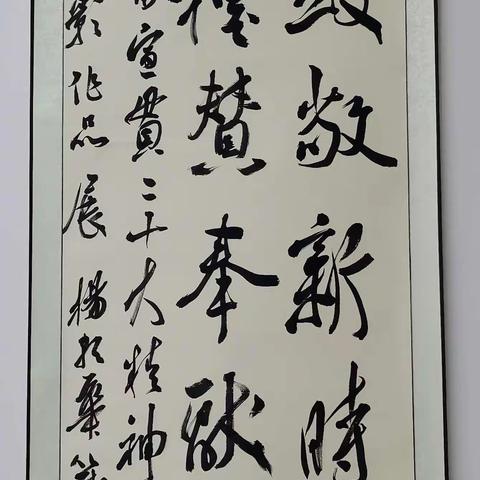 致敬新時
禮賛奉献
宣貫二十大精神
影作品展 楊